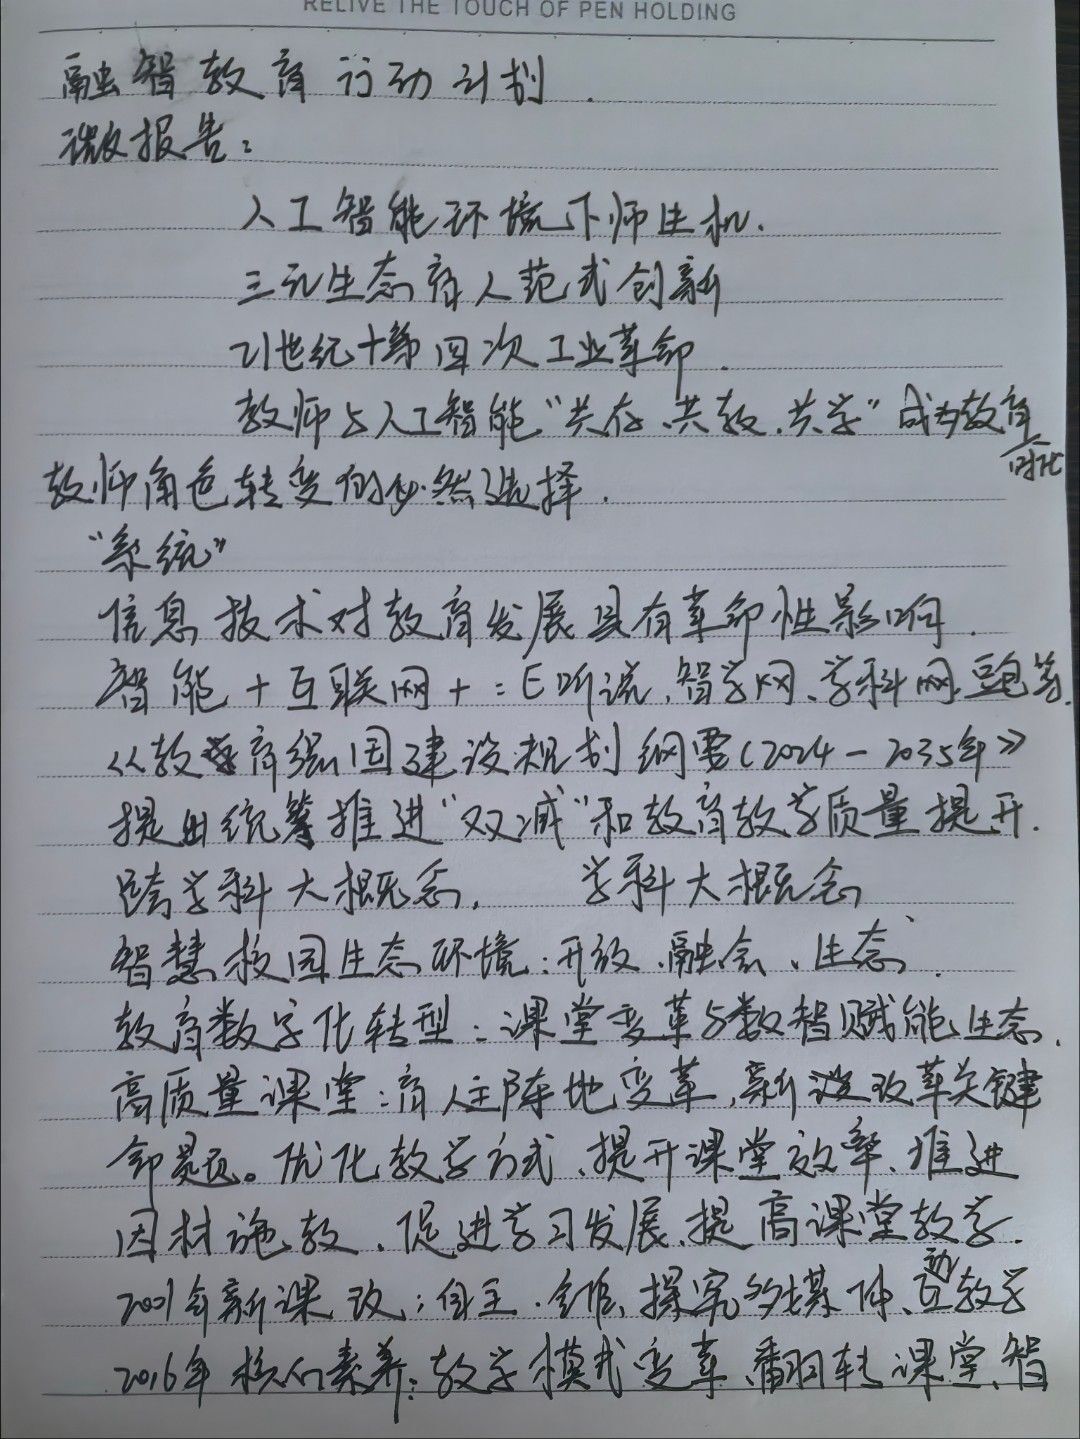 RELIVE THE TOUCH OF PEN HOLDING
融智教育行动计划.
微报告:
人工智能环境下师生机.
三元生态育人范式创新
21世纪十第四次工业革命.
教师与人工智能“共存、共教、共学”成为教育
时代
教师角色转变的必然选择.
“系统”
信息技术对教育发展具有革命性影响.
智能+互联网+:E听说,智学网、学科网,豆包等.
《教育强国建设规划纲要(2024-2035年》
提出统筹推进“双减”和教育教学质量提升.
跨学科大概念, 学科大概念
智慧校园生态环境:开放、融合、生态.
教育数字化转型:课堂变革与数智赋能生态.
高质量课堂:育人主阵地变革,新课改革关键
命题。优化教学方式、提升课堂效率、推进
因材施教、促进学习发展、提高课堂教学.
2001年新课改:自主.合作、探究多媒体、互动教学
2016年核心素养:教学模式变革、翻转课堂、智